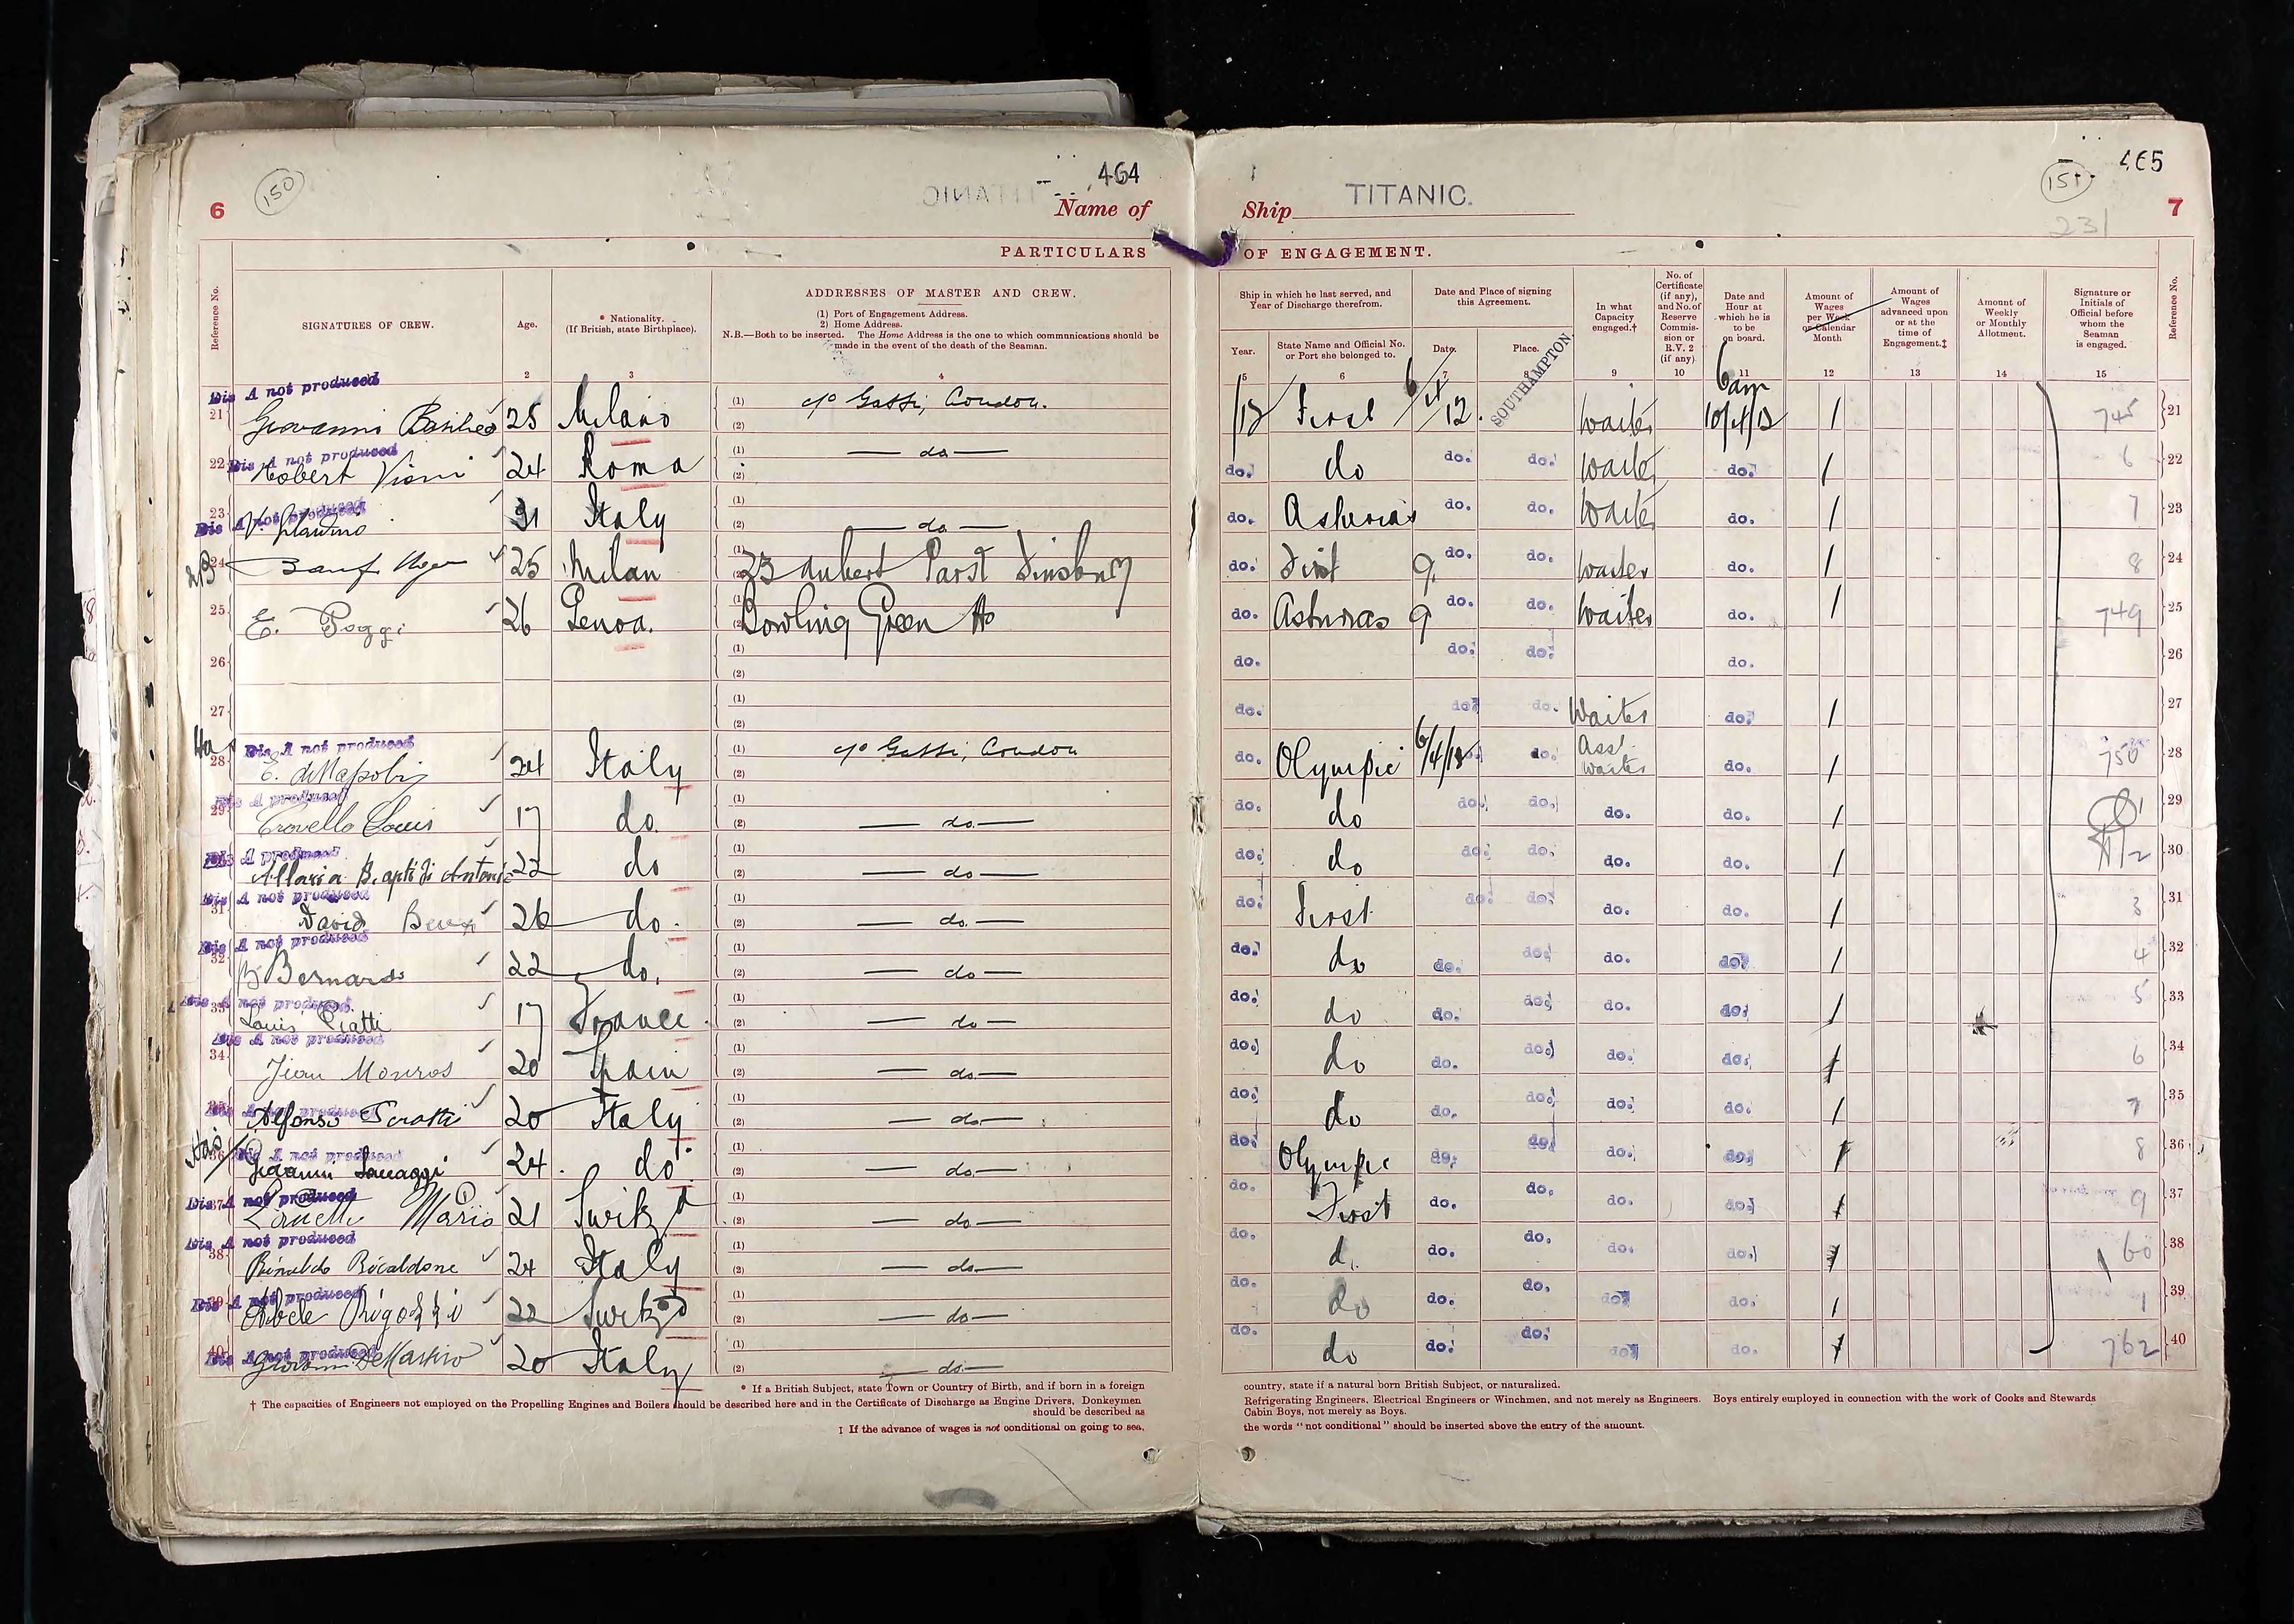 150
464
TITANIC
6
Name of
PARTICULARS
Reference No.
SIGNATURES OF CREW.
Age.
* Nationality.
(If British, state Birthplace).
ADDRESSES OF MASTER AND CREW.
(1) Port of Engagement Address.
2) Home Address.
N.B.—Both to be inserted. The Home Address is the one to which communications should be
made in the event of the death of the Seaman.
2 3 4
Dis A not produced
21 Giovanni Basilico 25 Milano (1) c/o Gatti, London.
(2)
Dis A not produced
22 Robert Vioni 24 Roma (1) — do —
(2)
Dis A not produced
23 V. Gilardino 31 Italy (1)
(2) — do —
24 25 Milan (1)
(2) 23 Aubert Park Finsbury
25 E. Poggi 26 Genoa. (1)
(2) Bowling Green Ho
26 (1)
(2)
27 (1)
(2)
Dis A not produced
28 E. 24 Italy (1) c/o Gatti, London
(2)
Dis A produced
29 Crovello Louis 17 do. (1)
(2) — do. —
Dis A produced
30 Allaria Baptisti Antonio 22 do (1)
(2) — do —
Dis A not produced
31 David Beux 26 do. (1)
(2) — do. —
Dis A not produced
32 B. Bernardo 22 do. (1)
(2) — do —
Dis A not produced
33 Louis Piatti 17 France. (1)
(2) — do —
Dis A not produced
34 Jean Monros 20 Spain (1)
(2) — do. —
Dis A not produced
35 Alfonso Perotti 20 Italy (1)
(2) — do. —
Dis A not produced
36 Giovanni Saccaggi 24. do (1)
(2) — do. —
Dis A not produced
37 Mario 21 Switzd (1)
(2) — do —
Dis A not produced
38 Rinaldo Ricaldone 24 Italy (1)
(2) — do —
Dis A not produced
39 Abele Rigozzi 22 Switzd (1)
(2) — do —
Dis A not produced
40 Giovanni De Martiro 20 Italy (1)
(2) — do —
* If a British Subject, state Town or Country of Birth, and if born in a foreign
† The capacities of Engineers not employed on the Propelling Engines and Boilers should be described here and in the Certificate of Discharge as Engine Drivers, Donkeymen
should be described as
‡ If the advance of wages is not conditional on going to sea,
465
151
231
Ship TITANIC.
7
OF ENGAGEMENT.
Ship in which he last served, and
Year of Discharge therefrom.
Year.
State Name and Official No.
or Port she belonged to.
Date and Place of signing
this Agreement.
Date.
Place.
In what
Capacity
engaged.†
No. of
Certificate
(if any),
and No. of
Reserve
Commis-
sion or
R.V. 2
(if any)
Date and
Hour at
which he is
to be
on board.
Amount of
Wages
per Week
or Calendar
Month
Amount of
Wages
advanced upon
or at the
time of
Engagement.‡
Amount of
Weekly
or Monthly
Allotment.
Signature or
Initials of
Official before
whom the
Seaman
is engaged.
Reference No.
5 6 7 8 9 10 11 12 13 14 15
SOUTHAMPTON.
6am
/12 First 6/4/12. Waiter 10/4/12 1/ 745 21
do. do do. do. Waiter do. 1/ 6 22
do. Asturias do. do. Waiter do. 1/ 7 23
do. First 9. do. do. Waiter do. 1/ 8 24
do. Asturias 9 do. do. Waiter do. 1/ 749 25
do. do. do. do. 26
do. do. do. Waiter do. 1/ 27
do. Olympic 6/4/12 do. Asst. Waiter do. 1/ 750 28
do. do do. do. do. do. 1/ 1 29
do. do do. do. do. do. 1/ 2 30
do. First do. do. do. do. 1/ 3 31
do. do do. do. do. do. 1/ 4 32
do. do do. do. do. do. 1/ 5 33
do. do do. do. do. do. 1/ 6 34
do. do do. do. do. do. 1/ 7 35
do. Olympic do. do. do. do. 1/ 8 36
do. First do. do. do. do. 1/ 9 37
do. d. do. do. do. do. 1/ 60 38
do. do do. do. do. do. 1/ 1 39
do. do do. do. do. do. 1/ 762 40
country, state if a natural born British Subject, or naturalized.
Refrigerating Engineers, Electrical Engineers or Winchmen, and not merely as Engineers. Boys entirely employed in connection with the work of Cooks and Stewards
Cabin Boys, not merely as Boys.
the words "not conditional" should be inserted above the entry of the amount.